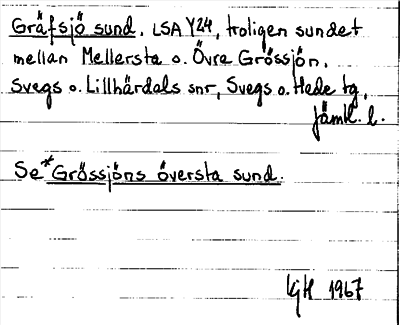 Gräfsjö sund, LSA Y24, troligen sundet
mellan Mellersta o. Övra Grössjön.
Svegs o. Lillhärdals snr, Svegs o. Hede tg,
Jämtl. l.
Se *Grössjöns översta sund.
GH 1967